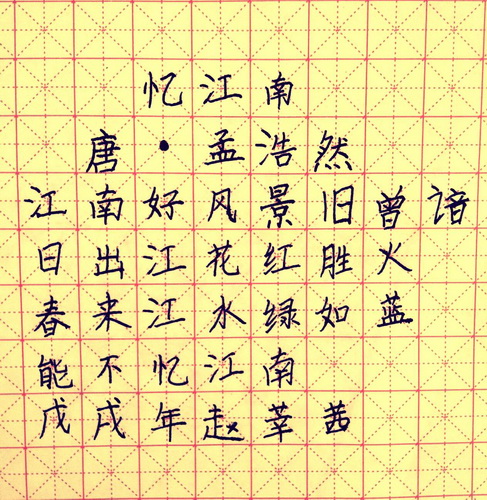 忆江南
唐·孟浩然
江南好风景旧曾谙
日出江花红胜火
春来江水绿如蓝
能不忆江南
戊戌年赵莘茜